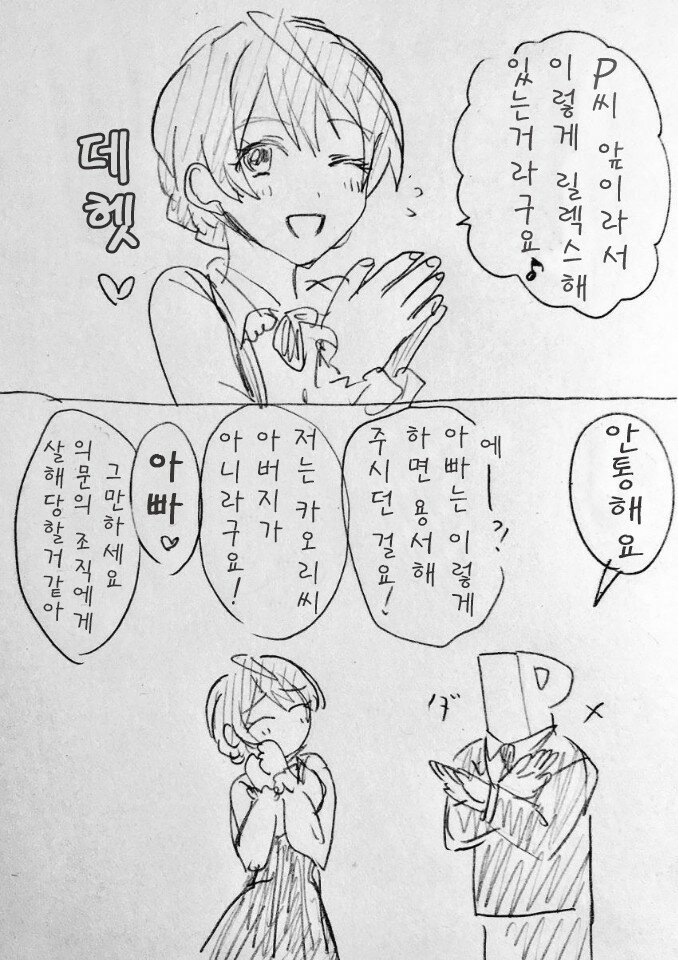 P씨 앞이라서
이렇게 릴렉스해
있는거라구요♪
데헷♡
안통해요
에ー?!
아빠는 이렇게
하면 용서해
주시던 걸요!
저는 카오리씨
아버지가
아니라구요!
아빠♡
그만하세요
의문의 조직에게
살해당할거같아
P
ダ
メ